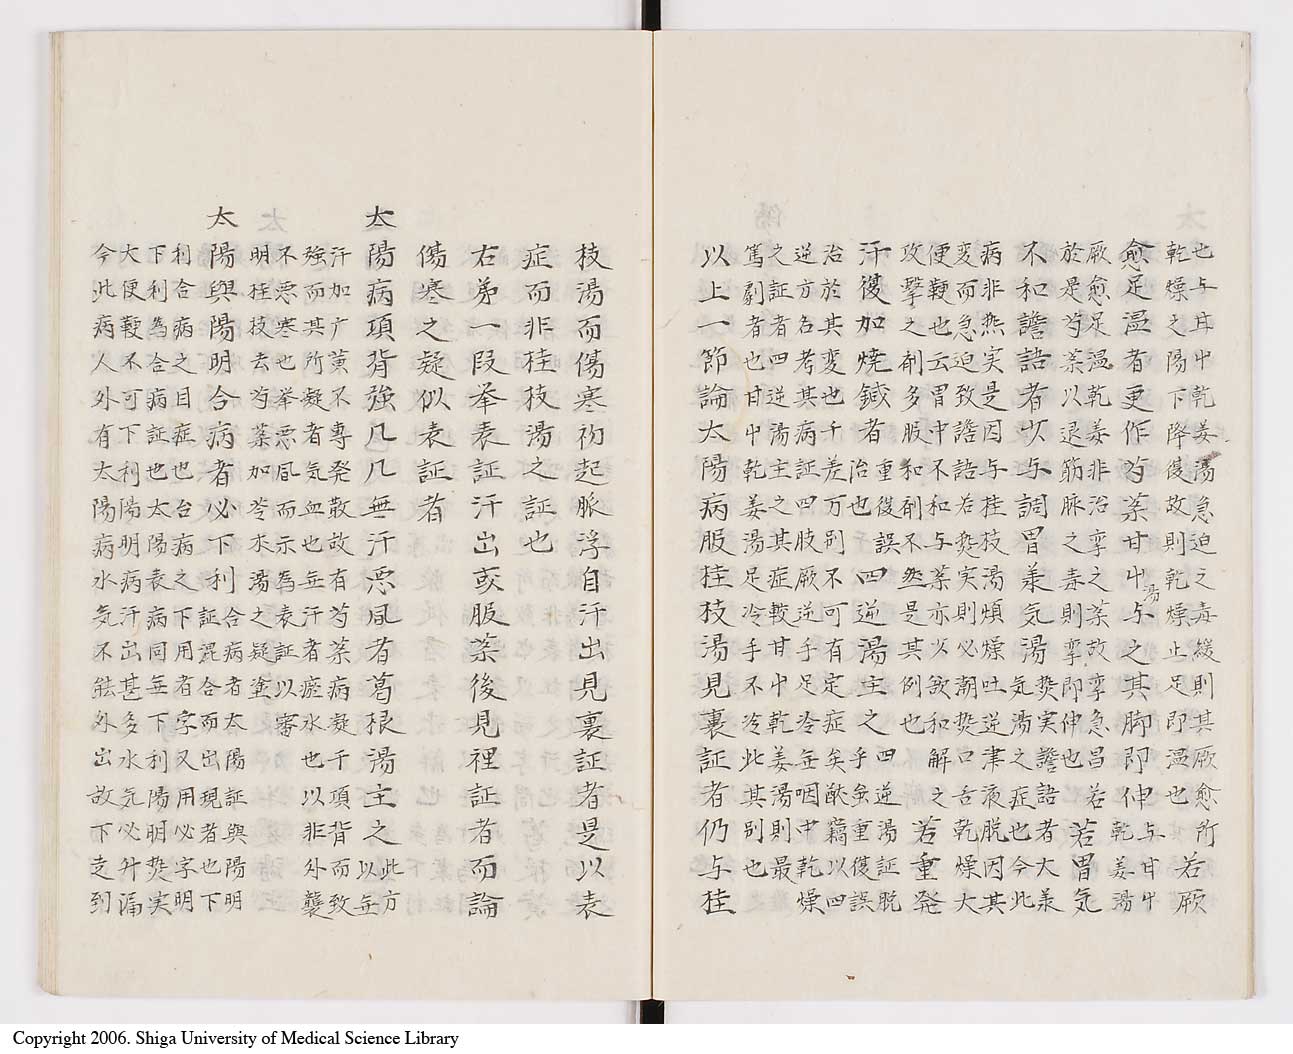 也与甘中乾姜湯急迫之毒緩則其厥愈所
乾燥之陽下降復故則乾燥止足即温也
若厥
愈足温者更作芍薬甘中湯与之其脚即伸
与甘中
乾姜湯
厥愈足温乾姜非治孿之薬故孿急昌若
於是芍薬以退筋脉之毒則孿即伸也
若胃気
不和譫語者以与調胃兼気湯
熱実譫語者大兼
気湯之症也今此
病非熱実是因与桂枝湯煩燥吐逆津液脱因其
変而急迫致譫語若熱実則必潮熱口舌乾燥大
便鞕也云胃中不和与薬亦以欲和解之
攻撃之剤多服和剤不然是其例也
若重発
汗復加焼鍼者
重復誤
治也
四逆湯主之
四逆湯証脱
乎虽重復誤
治於其変也千差万別不可有定症矣竊以四
逆方名考其病証四肢厥逆手足冷無咽中乾燥
之証者四逆湯主之其症較甘中乾姜湯則最
篤劇者也甘中乾姜湯足冷手不冷此其別也
以上一節論太陽病服桂枝湯見裏証者仍与桂
枝湯而傷寒初起脈浮自汗出見裏証者是以表
症而非桂枝湯之証也
右第一段挙表証汗出或服薬後見裡証者而論
傷寒之疑似表証者
太陽病項背強几几無汗悪風者葛根湯主之
此方
以無
汗加广薫不専発散故有芍薬病凝于項背而致
強而其所凝者気血也無汗者瘀水也以非外襲
不悪寒也挙悪風而示為表証以審
明桂枝去芍薬加苓朮湯之疑塗
太陽與陽明合病者必下利
合病者太陽証與陽明
証混合而出現者也下
利合病之目症也合病之下用者字又用必字明
下利為合病証也太陽表病同無下利陽明熱実
大便鞕不可下利陽明病汗出甚多水気必升漏
今此病人外有太陽病水気不能外出故下走到